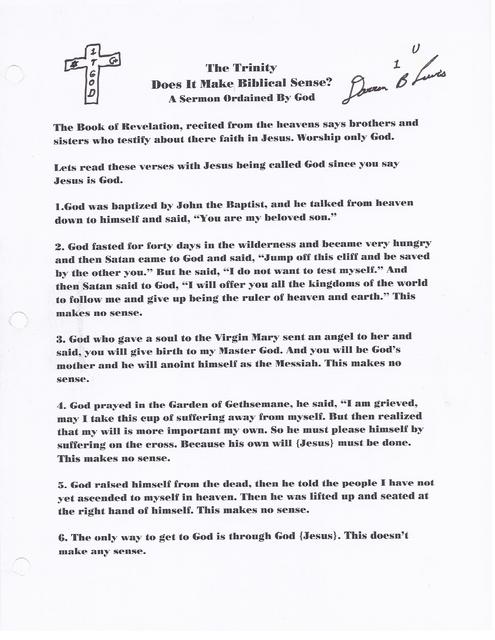 1
T
G
O
D
The Trinity
Does It Make Biblical Sense?
A Sermon Ordained By God
1 U
Darren B Lewis
The Book of Revelation, recited from the heavens says brothers and
sisters who testify about there faith in Jesus. Worship only God.
Lets read these verses with Jesus being called God since you say
Jesus is God.
1.God was baptized by John the Baptist, and he talked from heaven
down to himself and said, “You are my beloved son.”
2. God fasted for forty days in the wilderness and became very hungry
and then Satan came to God and said, “Jump off this cliff and be saved
by the other you.” But he said, “I do not want to test myself.” And
then Satan said to God, “I will offer you all the kingdoms of the world
to follow me and give up being the ruler of heaven and earth.” This
makes no sense.
3. God who gave a soul to the Virgin Mary sent an angel to her and
said, you will give birth to my Master God. And you will be God’s
mother and he will anoint himself as the Messiah. This makes no
sense.
4. God prayed in the Garden of Gethsemane, he said, “I am grieved,
may I take this cup of suffering away from myself. But then realized
that my will is more important my own. So he must please himself by
suffering on the cross. Because his own will {Jesus} must be done.
This makes no sense.
5. God raised himself from the dead, then he told the people I have not
yet ascended to myself in heaven. Then he was lifted up and seated at
the right hand of himself. This makes no sense.
6. The only way to get to God is through God {Jesus}. This doesn’t
make any sense.